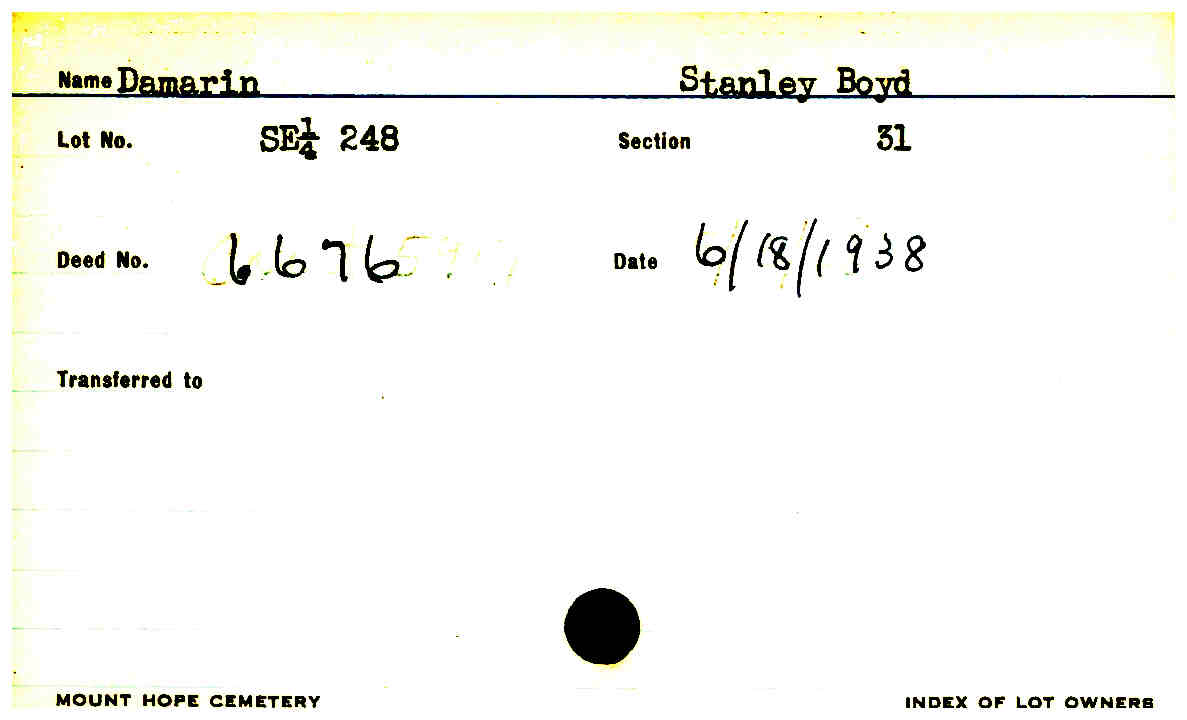 Name Damarin Stanley Boyd
Lot No. SE¼ 248 Section 31
Deed No. 6676 Date 6/18/1938
Transferred to
MOUNT HOPE CEMETERY INDEX OF LOT OWNERS